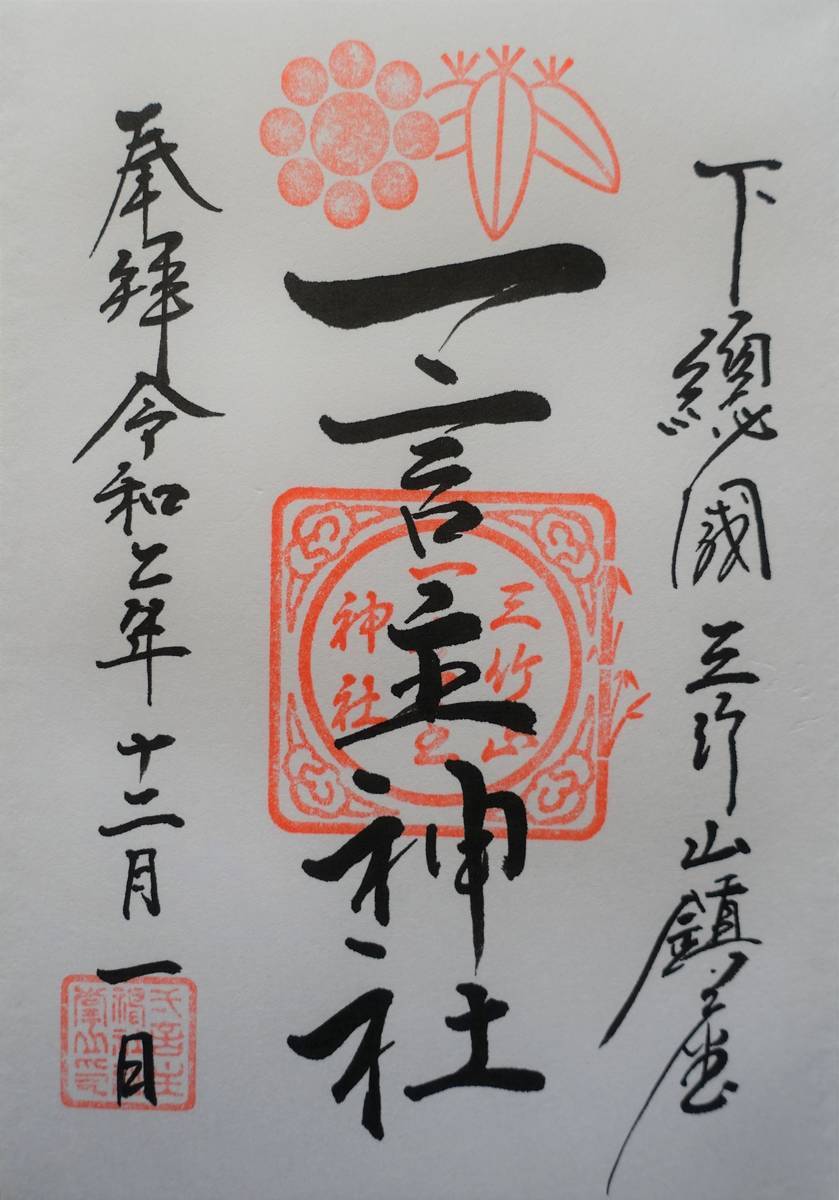 下總國 三竹山鎮座
一言主神社
三竹山
一言主
神社
奉拝 令和二年十二月一日